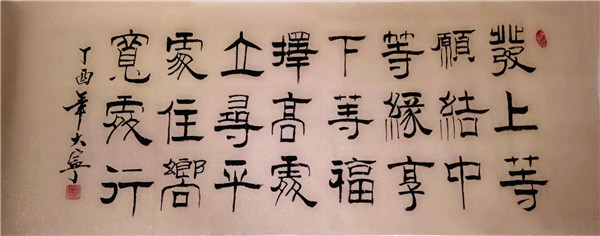 發上等
願結中
等緣享
下等福
擇高處
立尋平
處住嚮
寬處行
丁酉年大寧